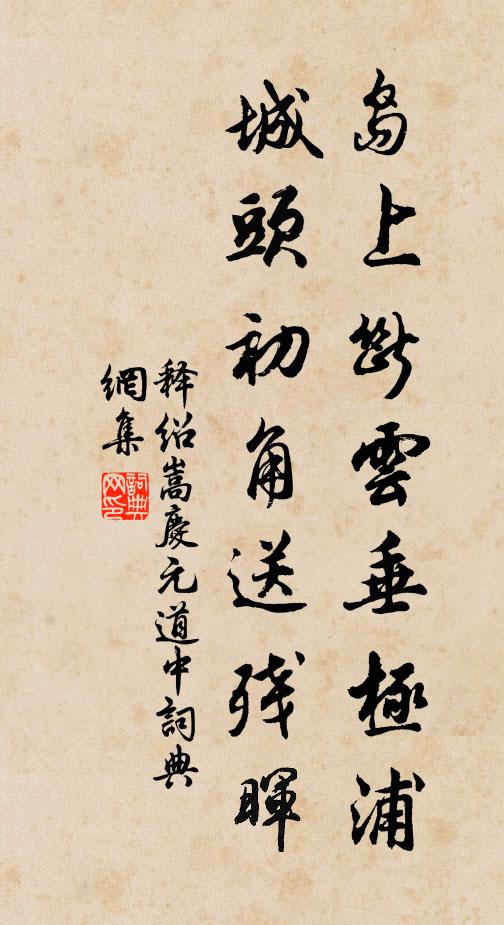 島上斷雲垂極浦
城頭初角送殘暉
释绍嵩慶元道中詞典
網集
詞典網印